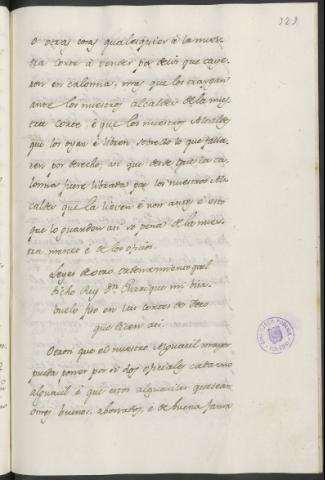 323
o otras cosas qualesquier à la nues-
tra Corte à vender por decir que caye-
ron en calonna, mas que los traygan
ante los nuestros alcaldes de la nues-
tra Corte, è que los nuestros Alcaldes
que los oyan è libren sobre ello lo que falla-
ren por derecho, asi que desde que la ca-
lonna fuere librada por los nuestros Al-
caldes que la lieven è non antes è esto
que lo guarden asi so pena de la nues-
tra merced è de los oficios.
Leyes de otro ordenamiento que el
dicho Rey Dn. Enrique mi visa-
buelo fizo en las cortes de Toro
que dicen asi.
Otrosi que el nuestro Alguacil mayor
pueda poner por si dos oficiales cada uno
alguacil è que estos alguaciles que sean
omes buenos, abonados, è de buena fama